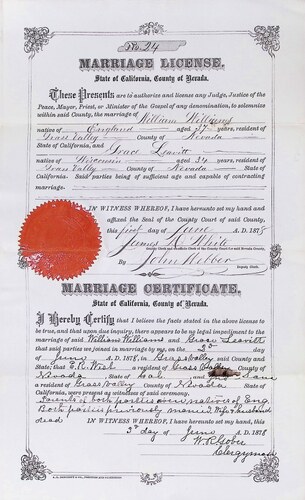 No. 24
MARRIAGE LICENSE.
State of California, County of Nevada.
These Presents are to authorize and license any Judge, Justice of the
Peace, Mayor, Priest, or Minister of the Gospel of any denomination, to solemnize
within said County, the marriage of William Williams
native of England aged 37 years, resident of
Grass Valley County of Nevada
State of California, and Grace Leavitt
native of Wisconsin aged 34 years, resident of
Grass Valley County of Nevada State of
California. Said parties being of sufficient age and capable of contracting
marriage.
IN WITNESS WHEREOF, I have hereunto set my hand and
affixed the Seal of the County Court of said County,
this first day of June A. D. 1878
James D. White
County Clerk and ex-officio Clerk of the County Court in and for Nevada County,
By John Webber
Deputy Clerk.
MARRIAGE CERTIFICATE.
State of California, County of Nevada.
I Hereby Certify that I believe the facts stated in the above license
to be true, and that upon due inquiry, there appears to be no legal impediment to the
marriage of said William Williams and Grace Leavitt
that said parties were joined in marriage by me, on the 2d day
of June A. D. 1878, in Grass Valley, said County and
State; that E. C. West a resident of Grass Valley
Nevada State of Cal. and
resident of Grass Valley County of Nevada
were present as witnesses of said ceremony.
Parents of both parties were natives of Eng.
Both parties previously married, Wife & husband
dead
IN WITNESS WHEREOF, I have hereunto set my hand,
this 3d day of June A. D. 1878
W. R. Gober
Clergyman